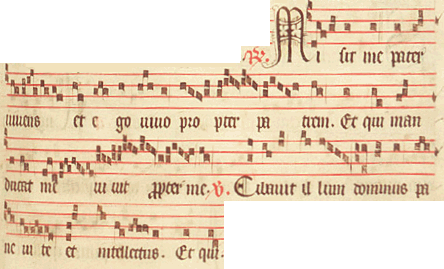 ℟. Mi sit me pater
uiuens et e go uiuo pro pter pa trem. Et qui man
ducat me ui uit ꝓpter me. ℣. Cibauit il lum dominus pa
ne ui te et intellectus. Et qui.